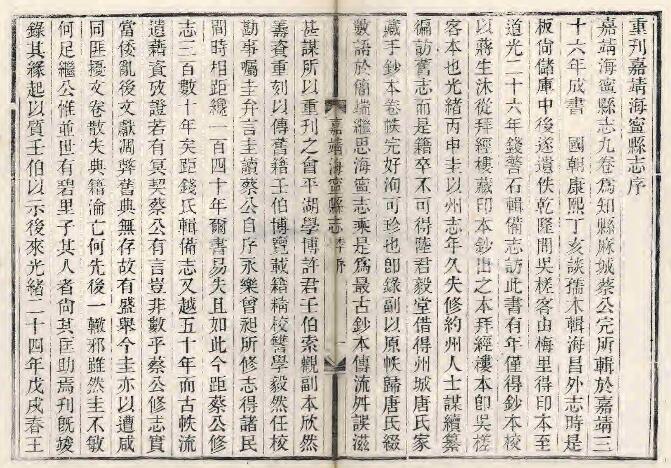 重刊嘉靖海寧縣志序
嘉靖海寧縣志九卷爲知縣麻城蔡公完所輯於嘉靖三
十六年成書 國朝康熙丁亥談孺木輯海昌外志時是
板尙儲庫中後遂遺佚乾隆間吳槎客由梅里得印本至
道光二十六年錢警石輯備志訪此書有年僅得鈔本校
以蔣生沐從拜經樓藏印本鈔出之本拜經樓本卽吳槎
客本也光緖丙申圭以州志年久失修約州人士謀續纂
徧訪舊志而是籍卒不可得陸君毅堂借得州城唐氏家
藏手鈔本卷帙完好洵可珍也卽錄副以原帙歸唐氏綴
數語於簡端繼思海寧志乘是爲最古鈔本傳流舛誤滋
嘉靖海寧縣志 序 一
甚謀所以重刊之會平湖學博許君壬伯索觀副本欣然
籌資重刻以傳舊籍壬伯博覽載籍精校讐學毅然任校
勘事囑圭弁言圭讀蔡公自序永樂曾昶所修志得諸民
間時相距纔一百四十年爾書易失且如此今距蔡公修
志三百數十年矣距錢氏輯備志又越五十年而古帙流
遺藉資攷證若有冥契蔡公有言豈非數乎蔡公修志實
當倭亂後文獻凋弊舊典無存故有盛舉今圭亦以遭咸
同匪擾文卷散失典籍淪亡何先後一轍邪雖然圭不敏
何足繼公惟並世有碧里子其人者尙其匡助焉刊旣竣
錄其緣起以質壬伯以示後來光緖二十四年戊戌春王